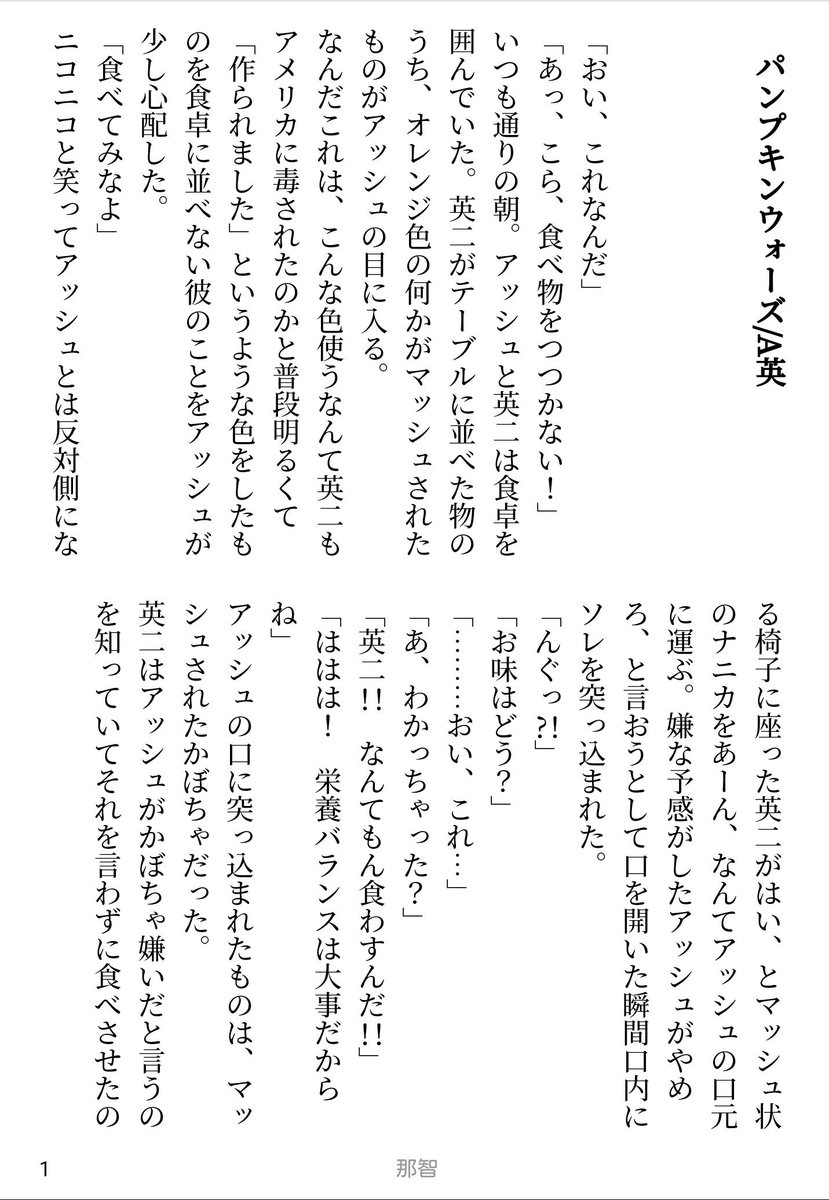 パンプキンウォーズ/A英
「おい、これなんだ」
「あっ、こら、食べ物をつつかない！」
いつも通りの朝。アッシュと英二は食卓を
囲んでいた。英二がテーブルに並べた物の
うち、オレンジ色の何かがマッシュされた
ものがアッシュの目に入る。
なんだこれは、こんな色使うなんて英二も
アメリカに毒されたのかと普段明るくて
「作られました」というような色をしたも
のを食卓に並べない彼のことをアッシュが
少し心配した。
「食べてみなよ」
ニコニコと笑ってアッシュとは反対側にな
る椅子に座った英二がはい、とマッシュ状
のナニカをあーん、なんてアッシュの口元
に運ぶ。嫌な予感がしたアッシュがやめ
ろ、と言おうとして口を開いた瞬間口内に
ソレを突っ込まれた。
「んぐっ?!」
「お味はどう？」
「………おい、これ…」
「あ、わかっちゃった？」
「英二!!　なんてもん食わすんだ!!」
「ははは！　栄養バランスは大事だから
ね」
アッシュの口に突っ込まれたものは、マッ
シュされたかぼちゃだった。
英二はアッシュがかぼちゃ嫌いだと言うの
を知っていてそれを言わずに食べさせたの
1
那智